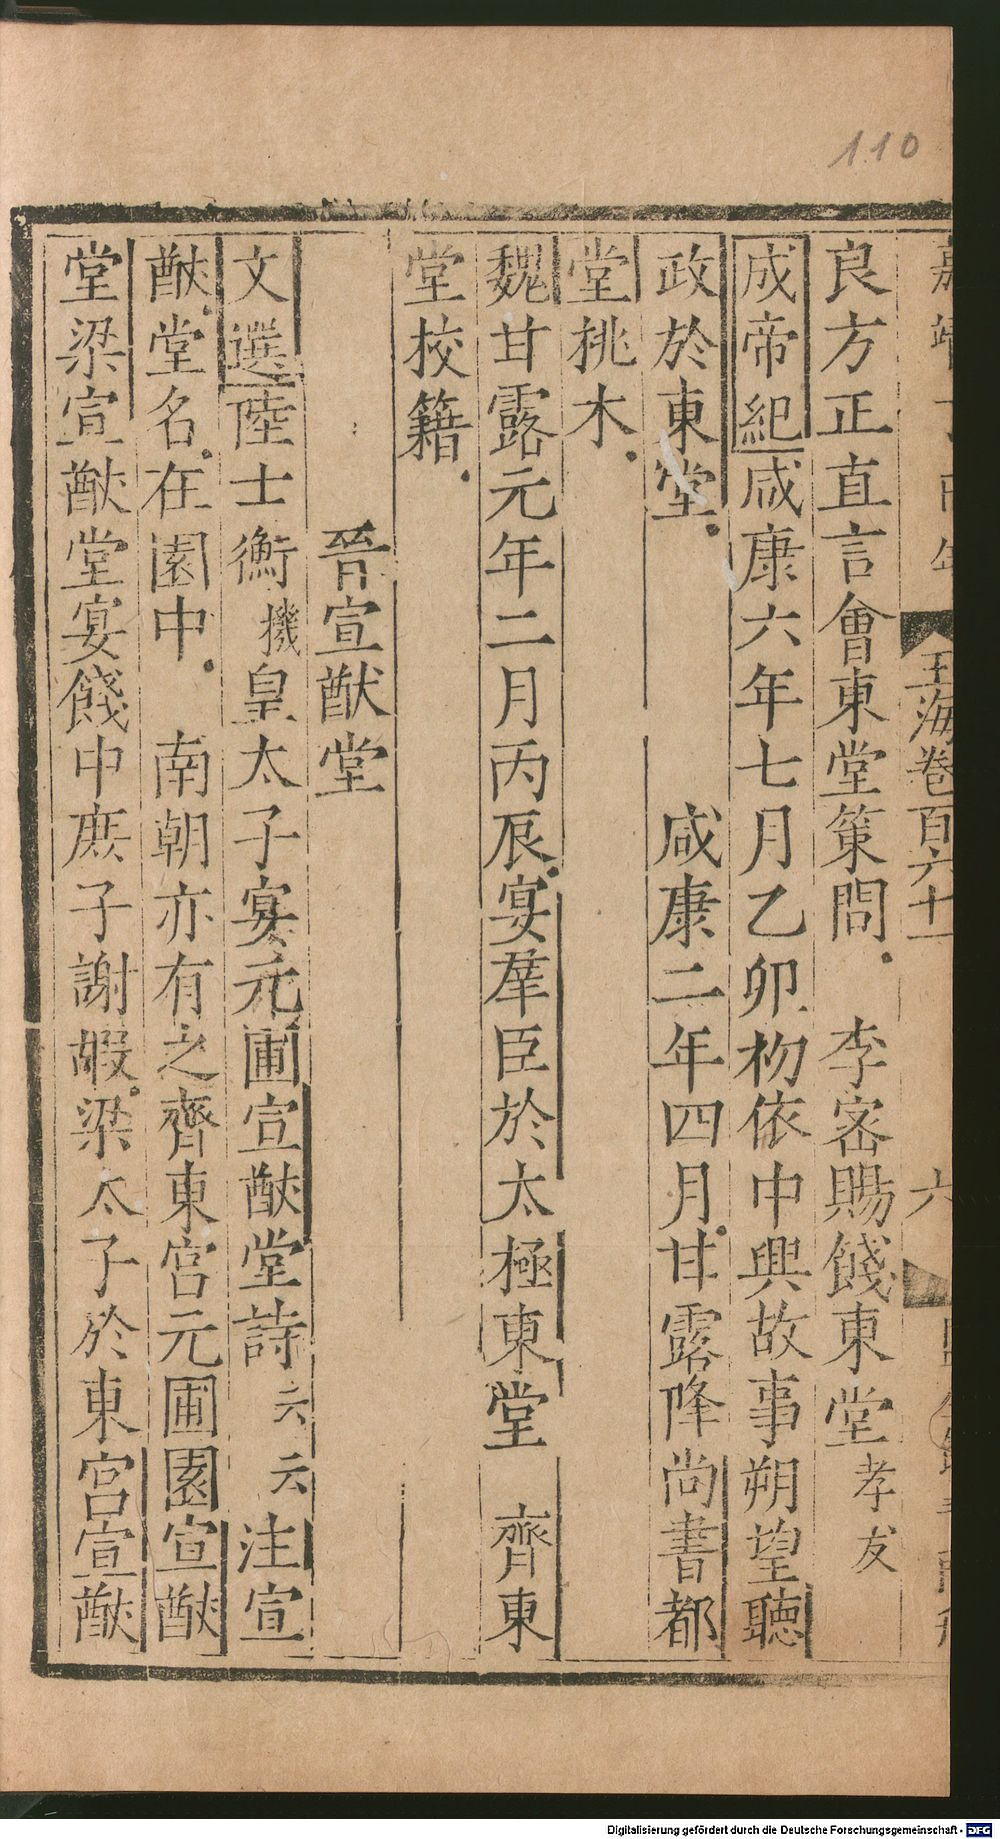 110
玉海卷百六十一
六
良方正直言會東堂策問 李密賜餞東堂孝友
成帝紀咸康六年七月乙卯初依中興故事朔望聽
政於東堂 咸康二年四月甘露降尚書都
堂桃木
魏甘露元年二月丙辰宴羣臣於太極東堂 齊東
堂校籍
晉宣猷堂
文選陸士衡機皇太子宴元圃宣猷堂詩云云注宣
猷堂名在園中 南朝亦有之齊東宮元圃園宣猷
堂梁宣猷堂宴餞中庶子謝嘏梁太子於東宮宣猷
Digitalisierung gefördert durch die Deutsche Forschungsgemeinschaft - DFG